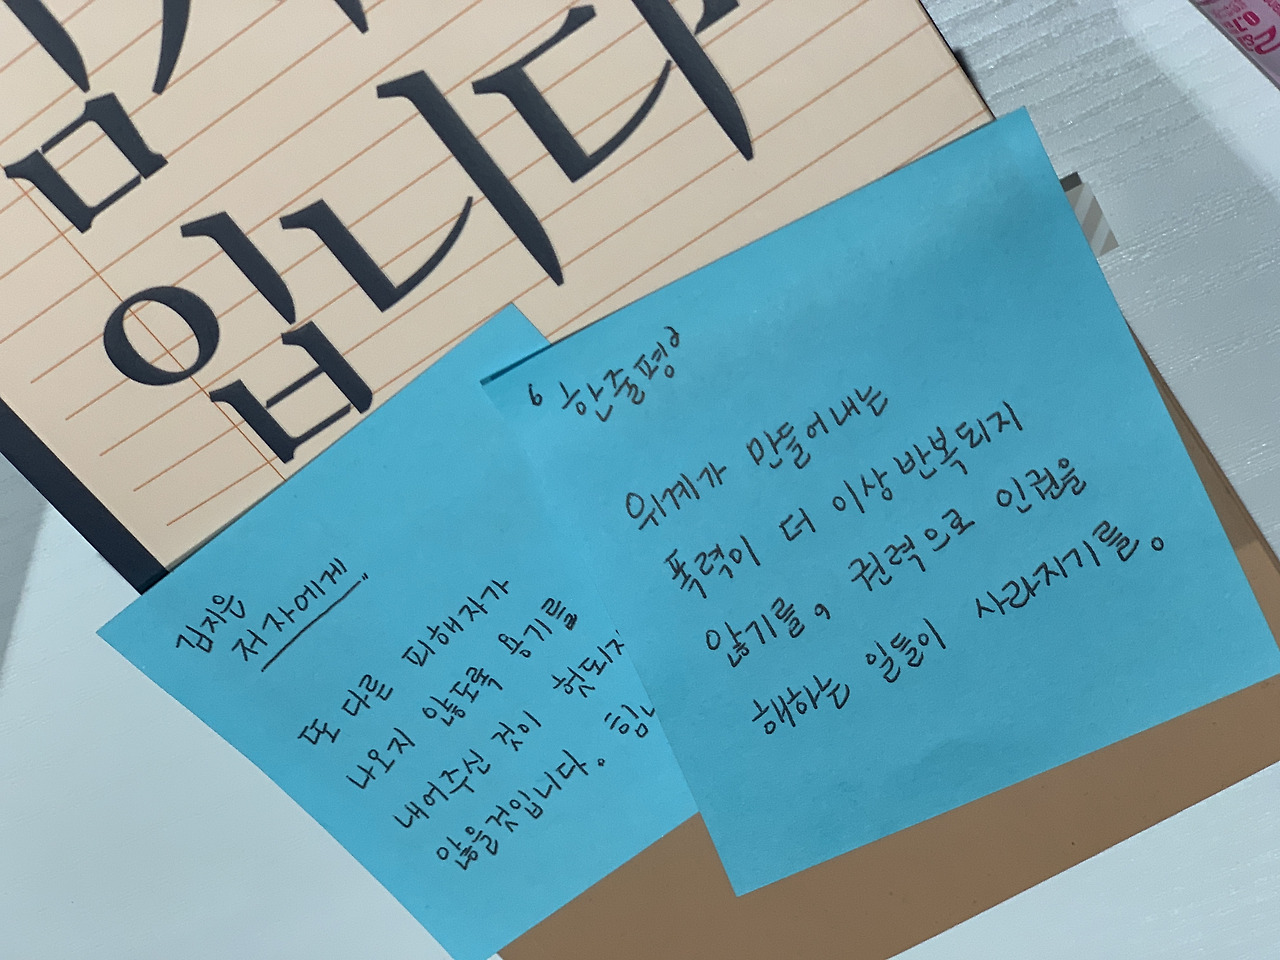 입니다
김지은
저자에게..
또 다른 피해자가
나오지 않도록 용기를
내어주신 것이 헛되지
않을것입니다. 힘
6 한줄평 9
위계가 만들어내는
폭력이 더 이상 반복되지
않기를, 권력으로 인권을
해하는 일들이 사라지기를.